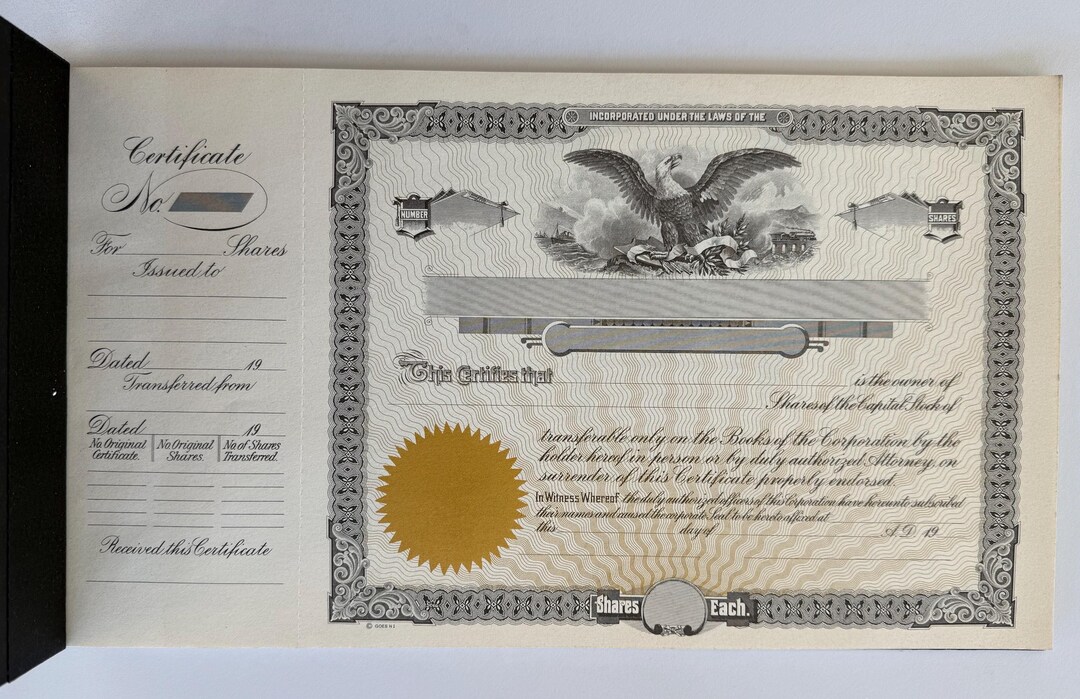 Certificate
No.
For Shares
Issued to
Dated 19
Transferred from
Dated 19
No. Original Certificate. No. Original Shares. No. of Shares Transferred.
Received this Certificate
INCORPORATED UNDER THE LAWS OF THE
NUMBER
SHARES
This Certifies that is the owner of
Shares of the Capital Stock of
transferable only on the Books of the Corporation by the
holder hereof in person or by duly authorized Attorney, on
surrender of this Certificate properly endorsed.
In Witness Whereof the duly authorized officers of this Corporation have hereunto subscribed
their names and caused the corporate Seal to be hereto affixed at
this day of A.D. 19
Shares Each.
© GOES